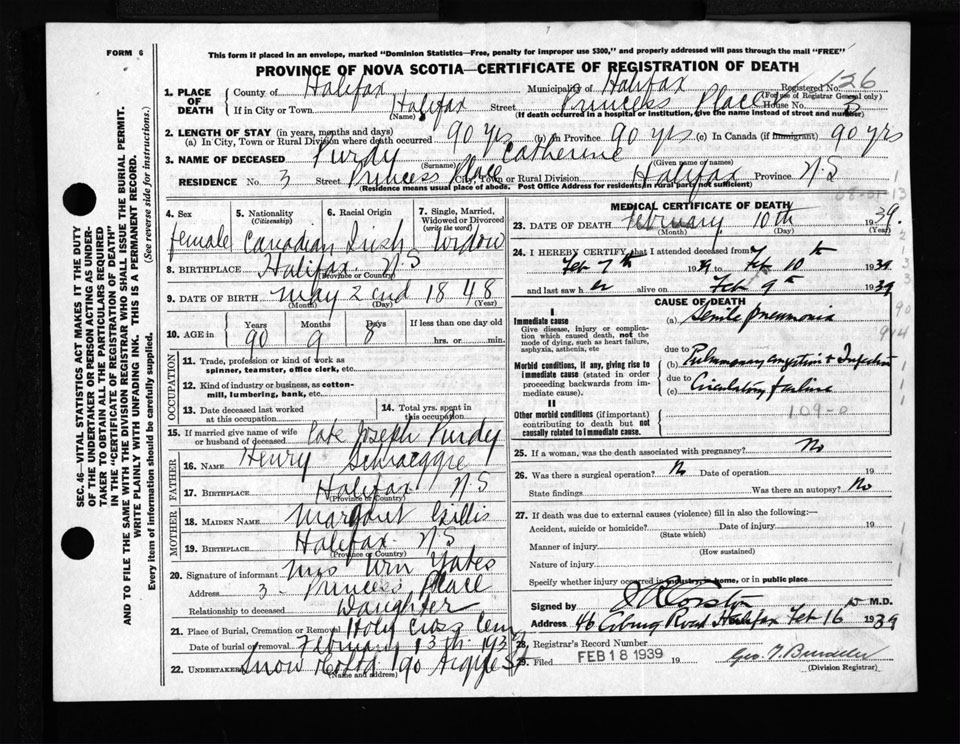 FORM 6
This form if placed in an envelope, marked "Dominion Statistics—Free, penalty for improper use $300," and properly addressed will pass through the mail "FREE"
PROVINCE OF NOVA SCOTIA—CERTIFICATE OF REGISTRATION OF DEATH
Registered No. 136
(For use of Registrar General only)
1. PLACE OF DEATH
County of Halifax Municipality of Halifax
If in City or Town Halifax Street Princess Place House No.
(Name)
(If death occurred in a hospital or institution, give the name instead of street and number)
2. LENGTH OF STAY (in years, months and days)
(a) In City, Town or Rural Division where death occurred 90 yrs (b) In Province 90 yrs (c) In Canada (if immigrant) 90 yrs
3. NAME OF DECEASED Purdy Catherine
(Surname) (Given name or names)
RESIDENCE No. 3 Street Princess Place City, Town or Rural Division Halifax Province N.S
(Residence means usual place of abode. Post Office Address for residents in rural parts not sufficient)
4. Sex female
5. Nationality (Citizenship) Canadian
6. Racial Origin Irish
7. Single, Married, Widowed or Divorced (write the word) Widow
8. BIRTHPLACE Halifax N S
(Province or Country)
9. DATE OF BIRTH May 2 end 1848
(Month) (Day) (Year)
10. AGE in Years Months Days If less than one day old
90 9 8 hrs. or min.
OCCUPATION
11. Trade, profession or kind of work as spinner, teamster, office clerk, etc.
12. Kind of industry or business, as cotton-mill, lumbering, bank, etc.
13. Date deceased last worked at this occupation
14. Total yrs. spent in this occupation
15. If married give name of wife or husband of deceased late Joseph Purdy
FATHER
16. NAME Henry
17. BIRTHPLACE Halifax N S
(Province or Country)
MOTHER
18. MAIDEN NAME Margaret Gillis
19. BIRTHPLACE Halifax N S
(Province or Country)
20. Signature of informant Mrs Wm Yates
Address 3 Princess Place
Relationship to deceased Daughter
21. Place of Burial, Cremation or Removal Holy Cross Cem
Date of burial or removal February 13th 1939
22. Undertaker Snow Co Ltd 190 Argyle St
(Name and address)
MEDICAL CERTIFICATE OF DEATH
23. DATE OF DEATH February 10th 1939.
(Month) (Day) (Year)
24. I HEREBY CERTIFY, that I attended deceased from
Feb 7th 1939 to Feb 10th 1939
and last saw her alive on Feb 9th 1939
CAUSE OF DEATH
I
Immediate cause
Give disease, injury or complication which caused death, not the mode of dying, such as heart failure, asphyxia, asthenia, etc
(a) Senile Pneumonia
due to
Morbid conditions, if any, giving rise to immediate cause (stated in order proceeding backwards from immediate cause).
(b) Pulmonary congestion + Infection
due to
(c) Circulatory failure
II
Other morbid conditions (if important) contributing to death but not causally related to immediate cause.
109-
25. If a woman, was the death associated with pregnancy? No
26. Was there a surgical operation? No Date of operation 19
State findings Was there an autopsy? No
27. If death was due to external causes (violence) fill in also the following:—
Accident, suicide or homicide? Date of injury 19
(State which)
Manner of injury
(How sustained)
Nature of injury
Specify whether injury occurred in industry, in home, or in public place
Signed by M.D.
Address 46 Coburg Road Halifax Feb 16 1939
28. Registrar's Record Number
29. Filed FEB 18 1939 19
(Division Registrar)
SEC. 46—VITAL STATISTICS ACT MAKES IT THE DUTY OF THE UNDERTAKER OR PERSON ACTING AS UNDERTAKER TO OBTAIN ALL THE PARTICULARS REQUIRED IN THE "CERTIFICATE OF REGISTRATION OF DEATH" AND TO FILE THE SAME WITH THE DIVISION REGISTRAR WHO SHALL ISSUE THE BURIAL PERMIT.
WRITE PLAINLY WITH UNFADING INK. THIS IS A PERMANENT RECORD.
Every item of information should be carefully supplied. (See reverse side for instructions.)